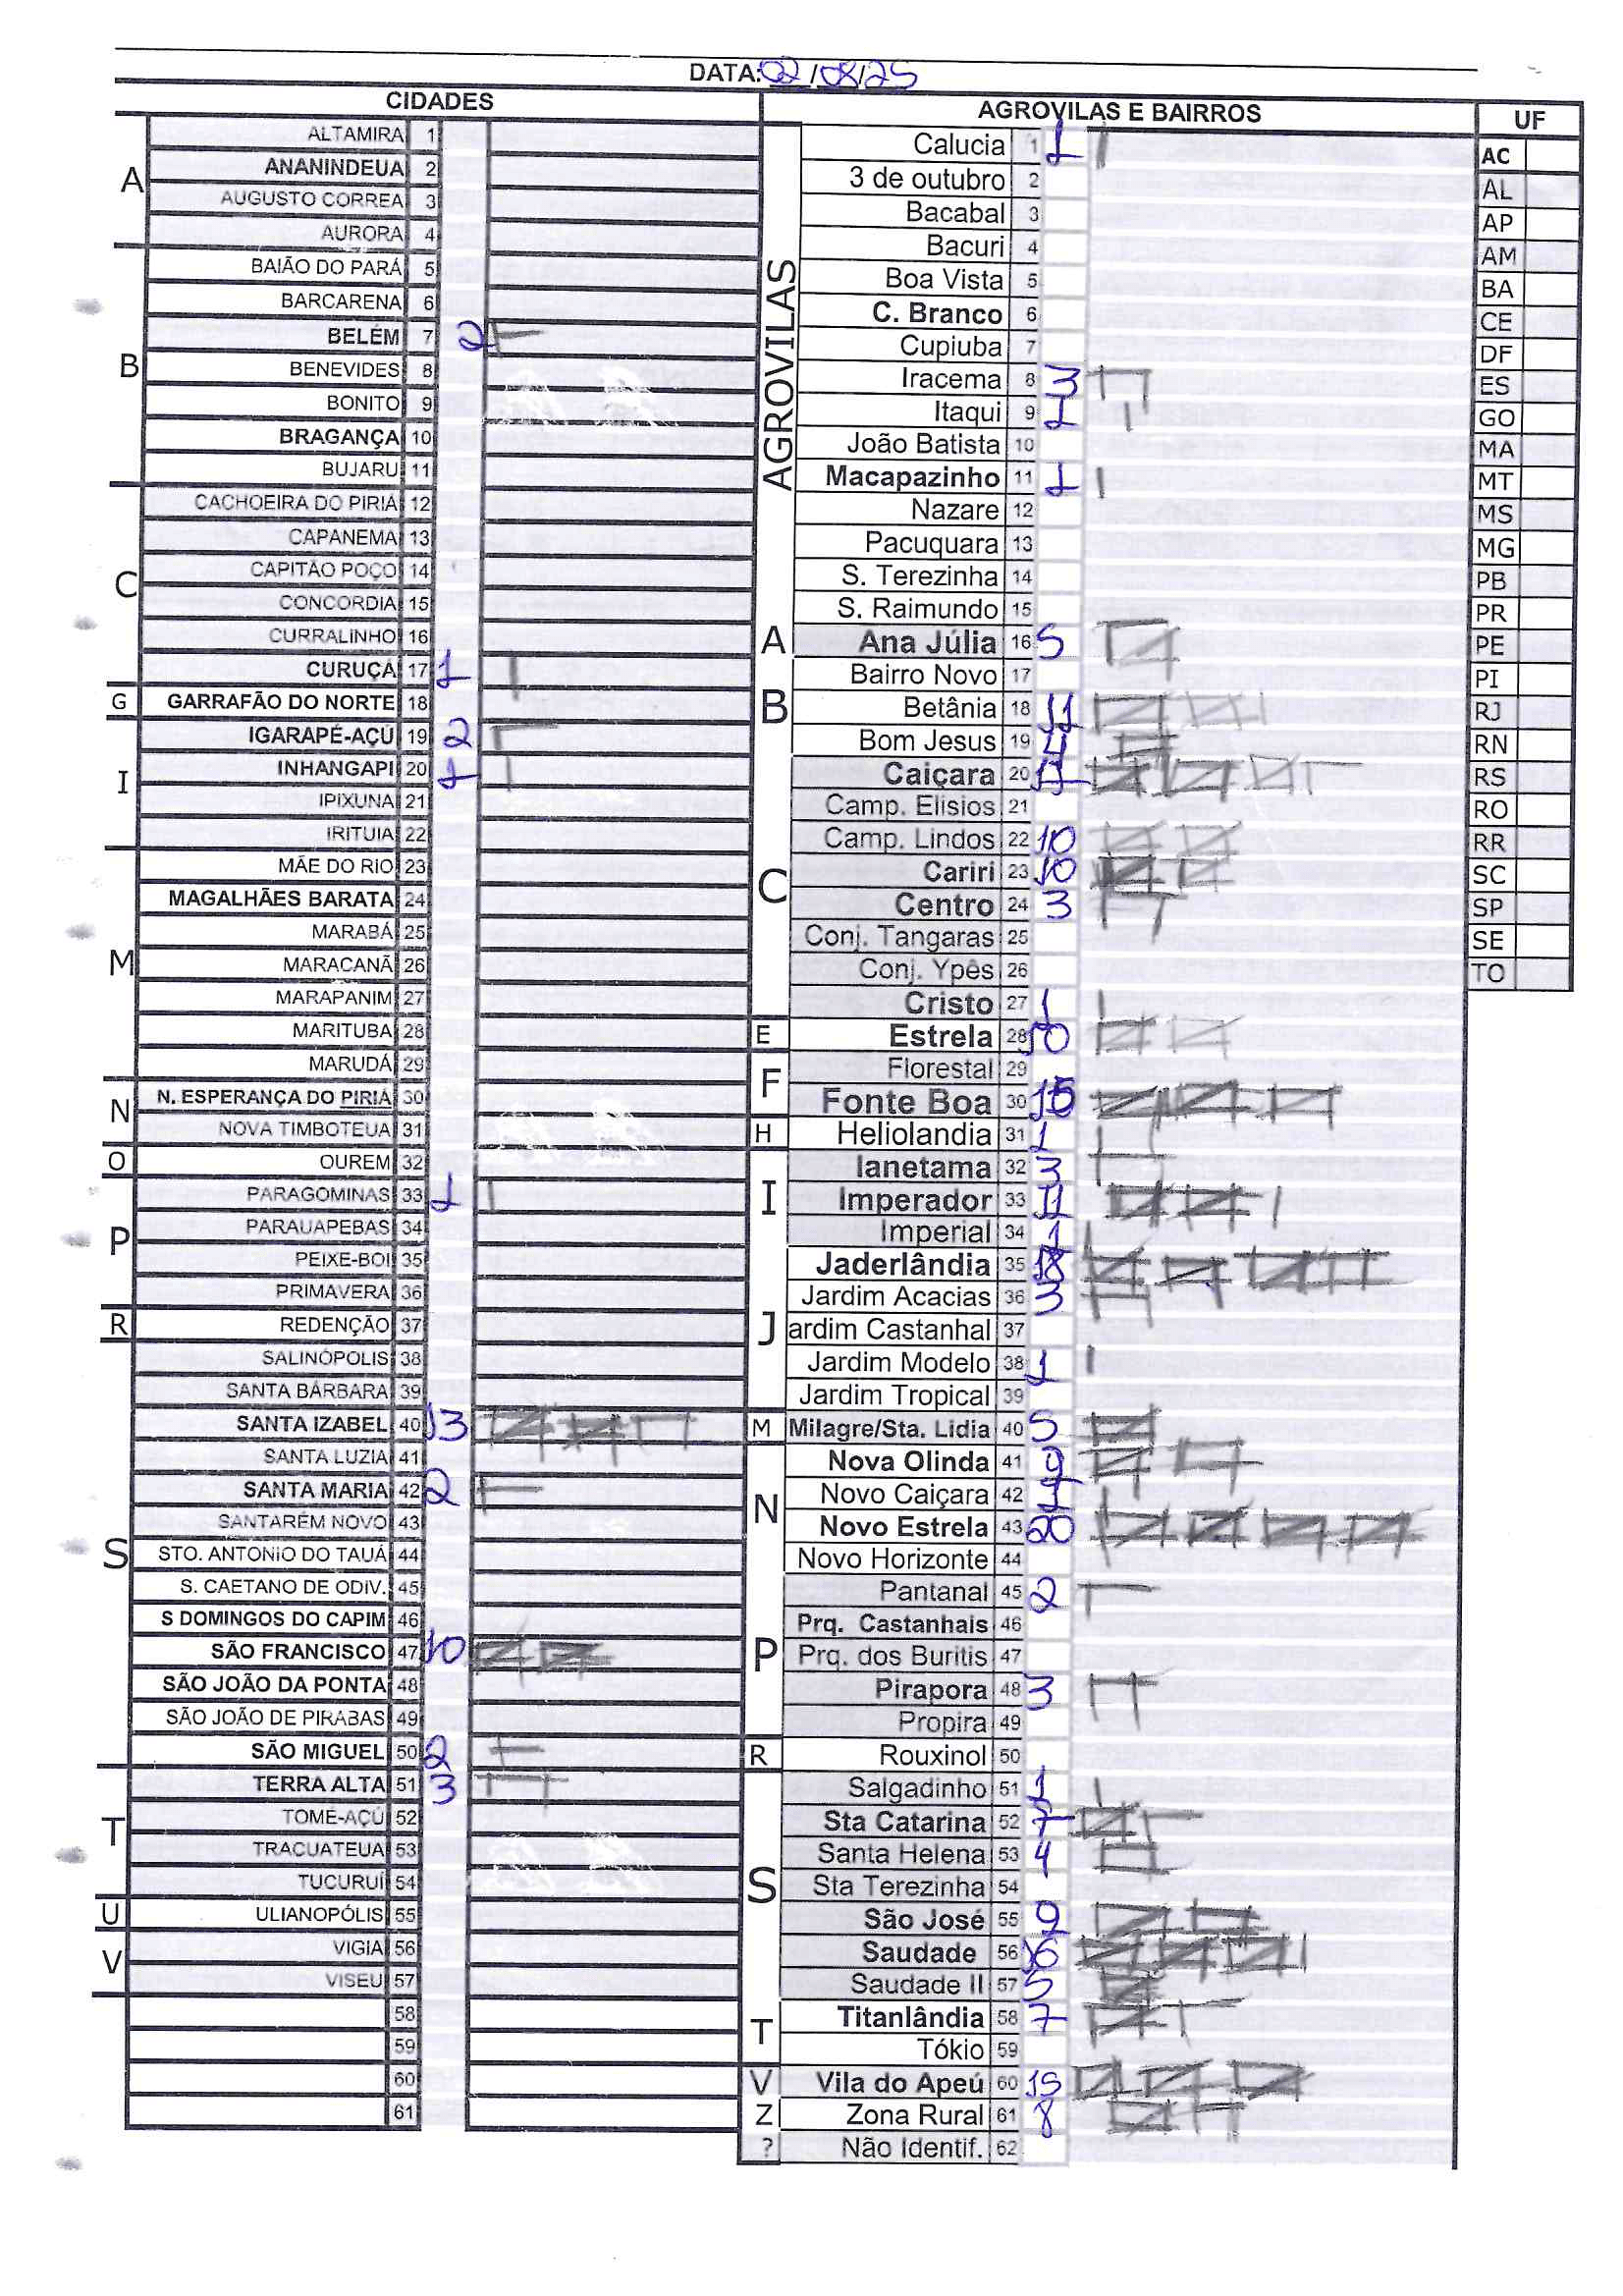 DATA: 02/08/25
CIDADES
A
ALTAMIRA 1
ANANINDEUA 2
AUGUSTO CORREA 3
AURORA 4
B
BAIÃO DO PARÁ 5
BARCARENA 6
BELÉM 7 2
BENEVIDES 8
BONITO 9
BRAGANÇA 10
BUJARU 11
C
CACHOEIRA DO PIRIÁ 12
CAPANEMA 13
CAPITÃO POÇO 14
CONCORDIA 15
CURRALINHO 16
CURUÇA 17 1
G
GARRAFÃO DO NORTE 18
I
IGARAPÉ-AÇÚ 19 2
INHANGAPI 20 1
IPIXUNA 21
IRITUIA 22
M
MÃE DO RIO 23
MAGALHÃES BARATA 24
MARABÁ 25
MARACANÃ 26
MARAPANIM 27
MARITUBA 28
MARUDÁ 29
N
N. ESPERANÇA DO PIRIÁ 30
NOVA TIMBOTEUA 31
O
OUREM 32
P
PARAGOMINAS 33 1
PARAUAPEBAS 34
PEIXE-BOI 35
PRIMAVERA 36
R
REDENÇÃO 37
S
SALINÓPOLIS 38
SANTA BÁRBARA 39
SANTA IZABEL 40 13
SANTA LUZIA 41
SANTA MARIA 42 2
SANTARÉM NOVO 43
STO. ANTONIO DO TAUÁ 44
S. CAETANO DE ODIV. 45
S DOMINGOS DO CAPIM 46
SÃO FRANCISCO 47 10
SÃO JOÃO DA PONTA 48
SÃO JOÃO DE PIRABAS 49
SÃO MIGUEL 50 2
T
TERRA ALTA 51 3
TOMÉ-AÇÚ 52
TRACUATEUA 53
TUCURUÍ 54
U
ULIANOPÓLIS 55
V
VIGIA 56
VISEU 57
58
59
60
61
AGROVILAS E BAIRROS
AGROVILAS
Calucia 1 1
3 de outubro 2
Bacabal 3
Bacuri 4
Boa Vista 5
C. Branco 6
Cupiuba 7
Iracema 8 3
Itaqui 9 1
João Batista 10
Macapazinho 11 1
Nazare 12
Pacuquara 13
S. Terezinha 14
S. Raimundo 15
A
Ana Júlia 16 5
B
Bairro Novo 17
Betânia 18 11
Bom Jesus 19 4
C
Caiçara 20 17
Camp. Elisios 21
Camp. Lindos 22 10
Cariri 23 10
Centro 24 3
Conj. Tangaras 25
Conj. Ypês 26
Cristo 27 1
E
Estrela 28 10
F
Florestal 29
Fonte Boa 30 15
H
Heliolandia 31 1
I
Ianetama 32 3
Imperador 33 11
Imperial 34 1
J
Jaderlândia 35 18
Jardim Acacias 36 3
ardim Castanhal 37
Jardim Modelo 38 1
Jardim Tropical 39
M
Milagre/Sta. Lidia 40 5
N
Nova Olinda 41 9
Novo Caiçara 42 1
Novo Estrela 43 20
Novo Horizonte 44
P
Pantanal 45 2
Prq. Castanhais 46
Prq. dos Buritis 47
Pirapora 48 3
Propira 49
R
Rouxinol 50
S
Salgadinho 51 1
Sta Catarina 52 7
Santa Helena 53 4
Sta Terezinha 54
São José 55 9
Saudade 56 16
Saudade II 57 5
T
Titanlândia 58 7
Tókio 59
V
Vila do Apeú 60 15
Z
Zona Rural 61 8
?
Não Identif. 62
UF
AC
AL
AP
AM
BA
CE
DF
ES
GO
MA
MT
MS
MG
PB
PR
PE
PI
RJ
RN
RS
RO
RR
SC
SP
SE
TO